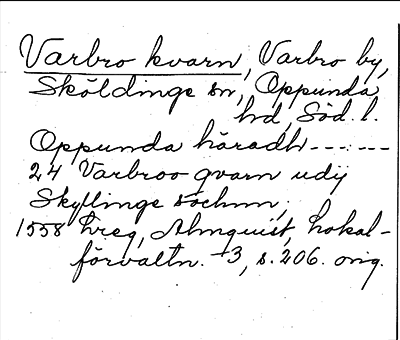 Varbro kvarn, Varbro by,
Sköldinge sn, Oppunda
hd, Söd. l.
Oppunda häradh------
24 Varbroo qvarn udij
Skyllinge sochnn,
1558 hreg, Almquist, Lokal-
förvaltn. 3, s. 206. orig.